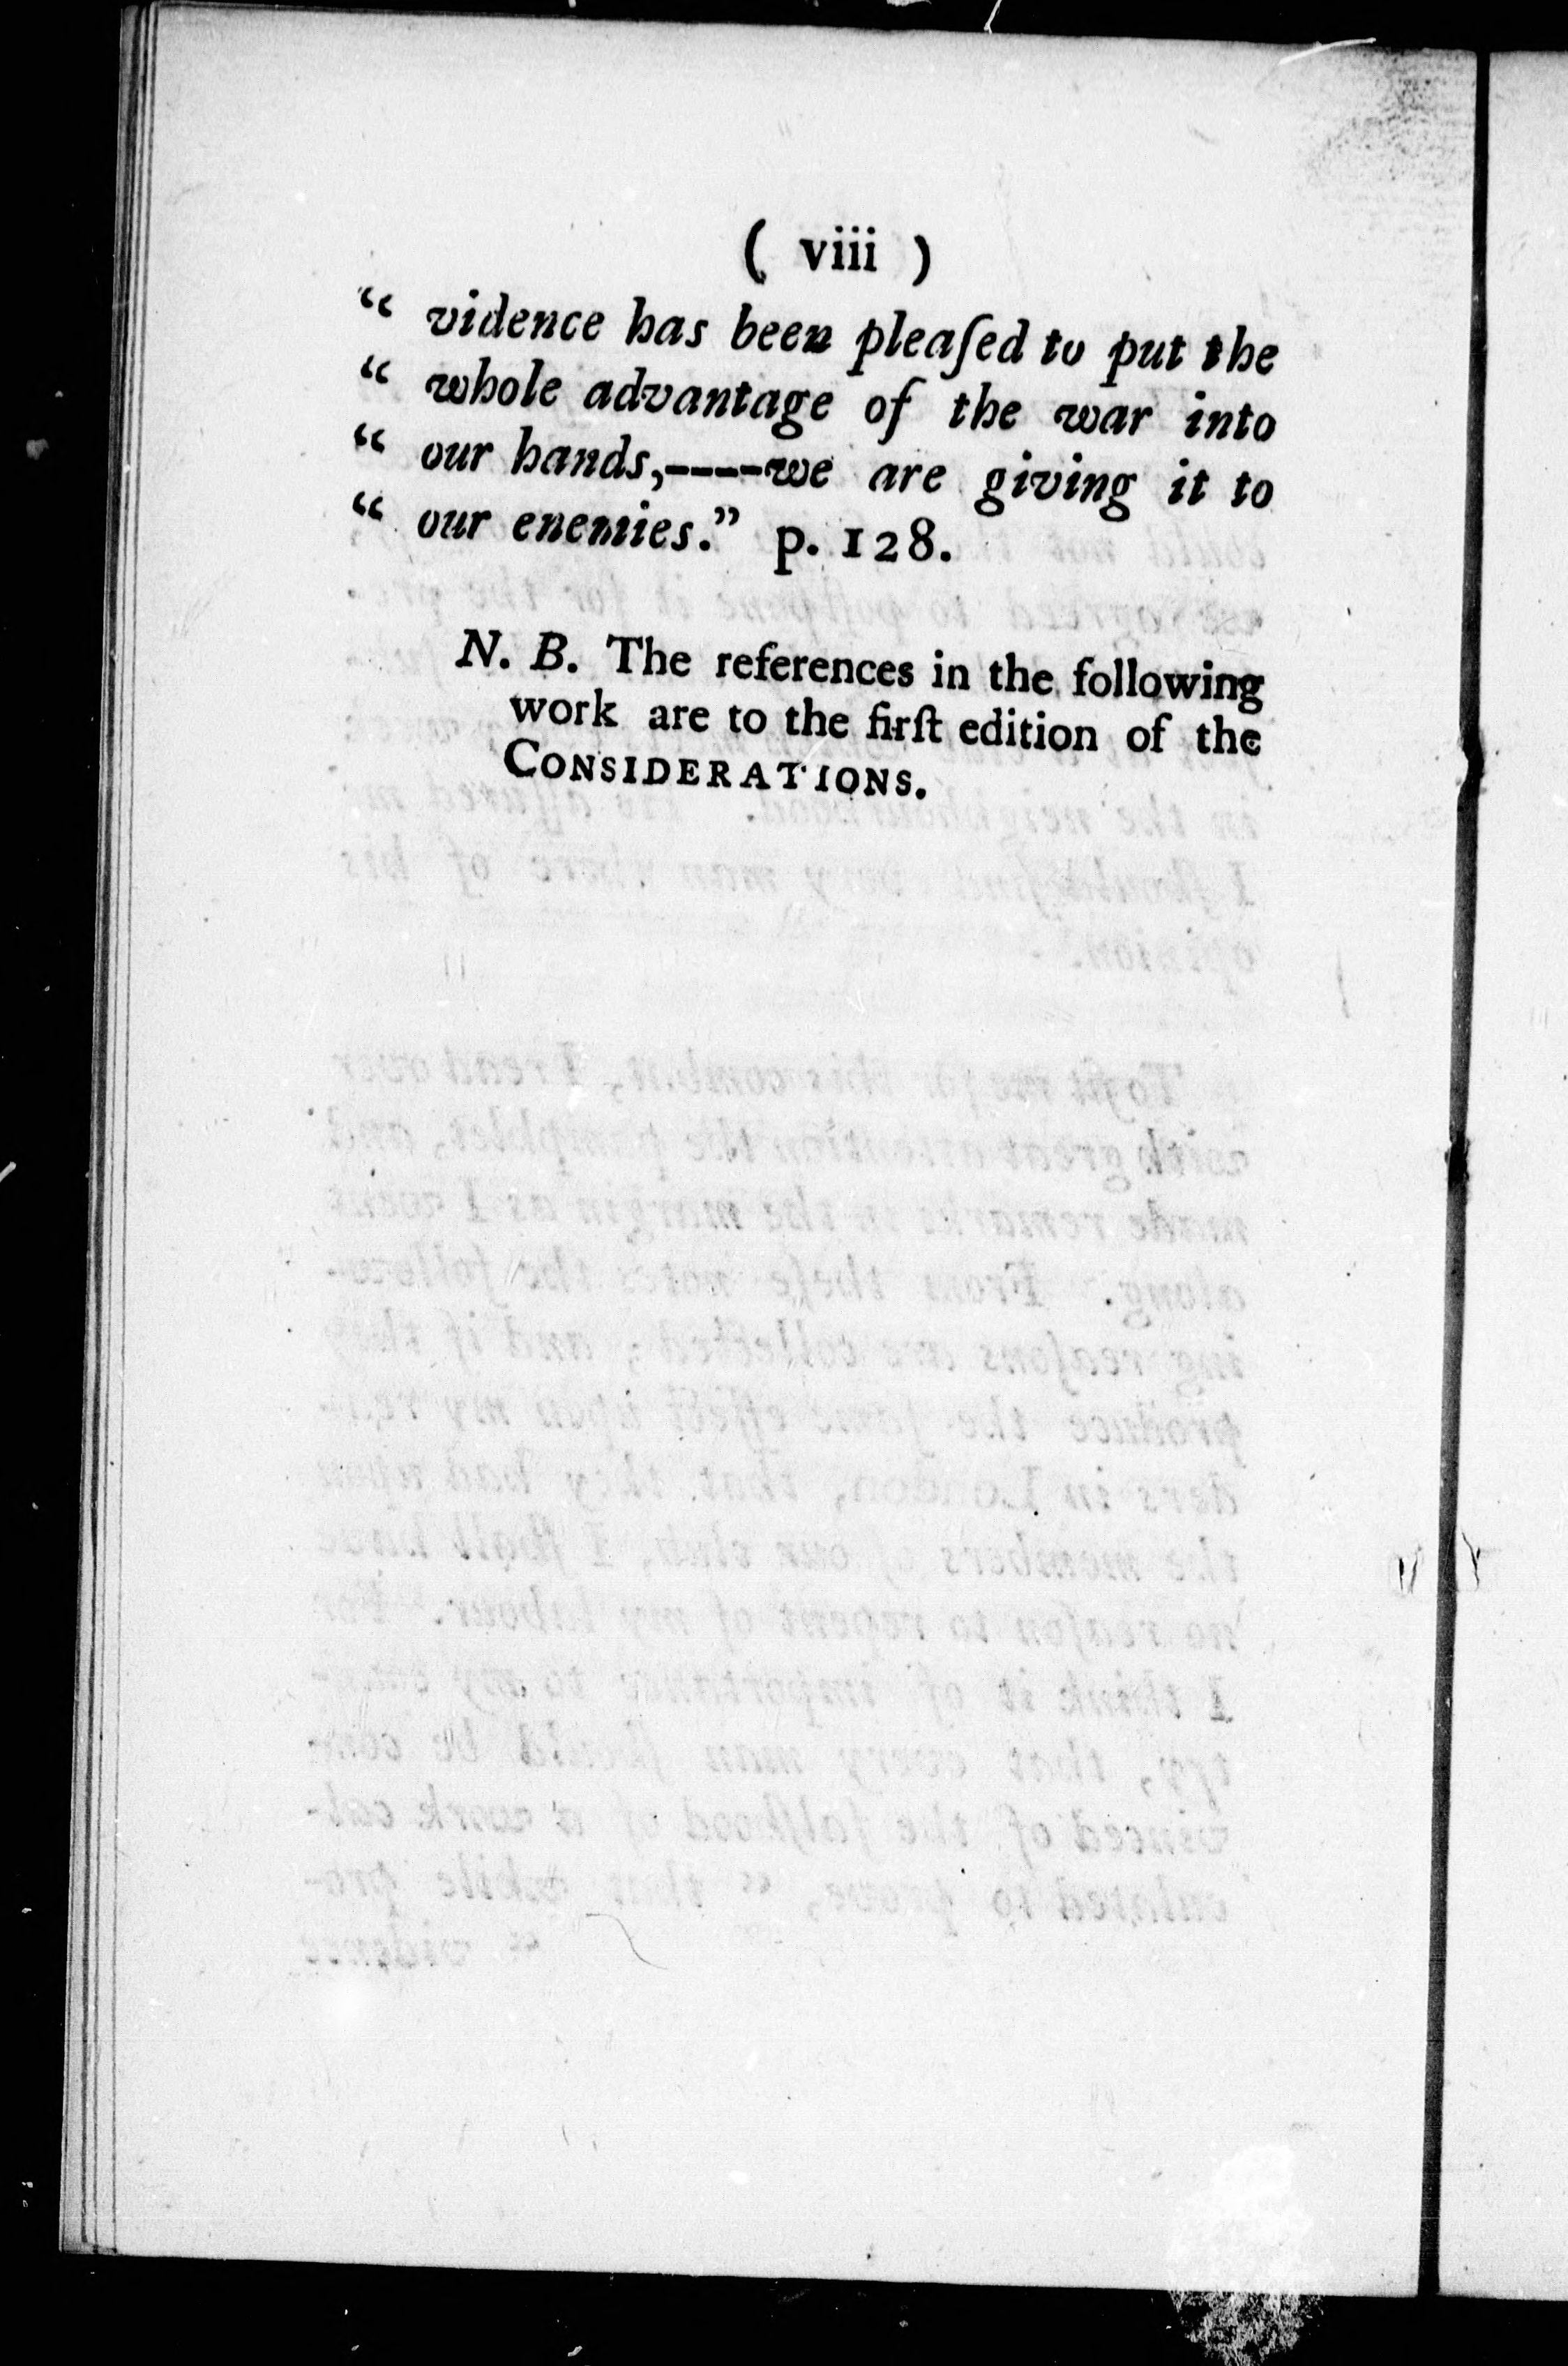 ( viii )
“ vidence has been pleaſed to put the
“ whole advantage of the war into
“ our hands,----we are giving it to
“ our enemies.” p. 128.
N. B. The references in the following
work are to the firſt edition of the
CONSIDERATIONS.